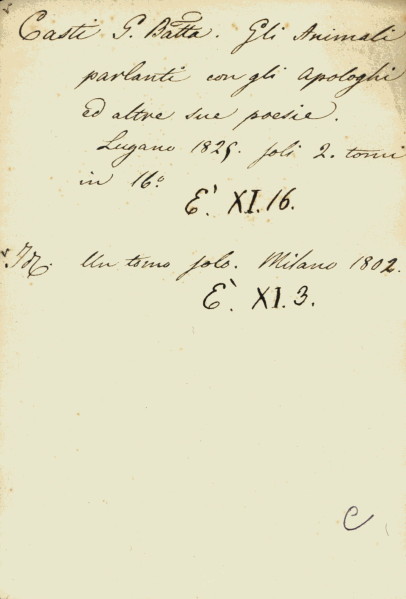 Casti G. Batta. Gli Animali
parlanti con gli Apologhi
ed altre sue poesie.
Lugano 1825. soli 2. tomi
in 16º
È. XI. 16.
Id. Un tomo solo. Milano 1802.
È. XI. 3.
C